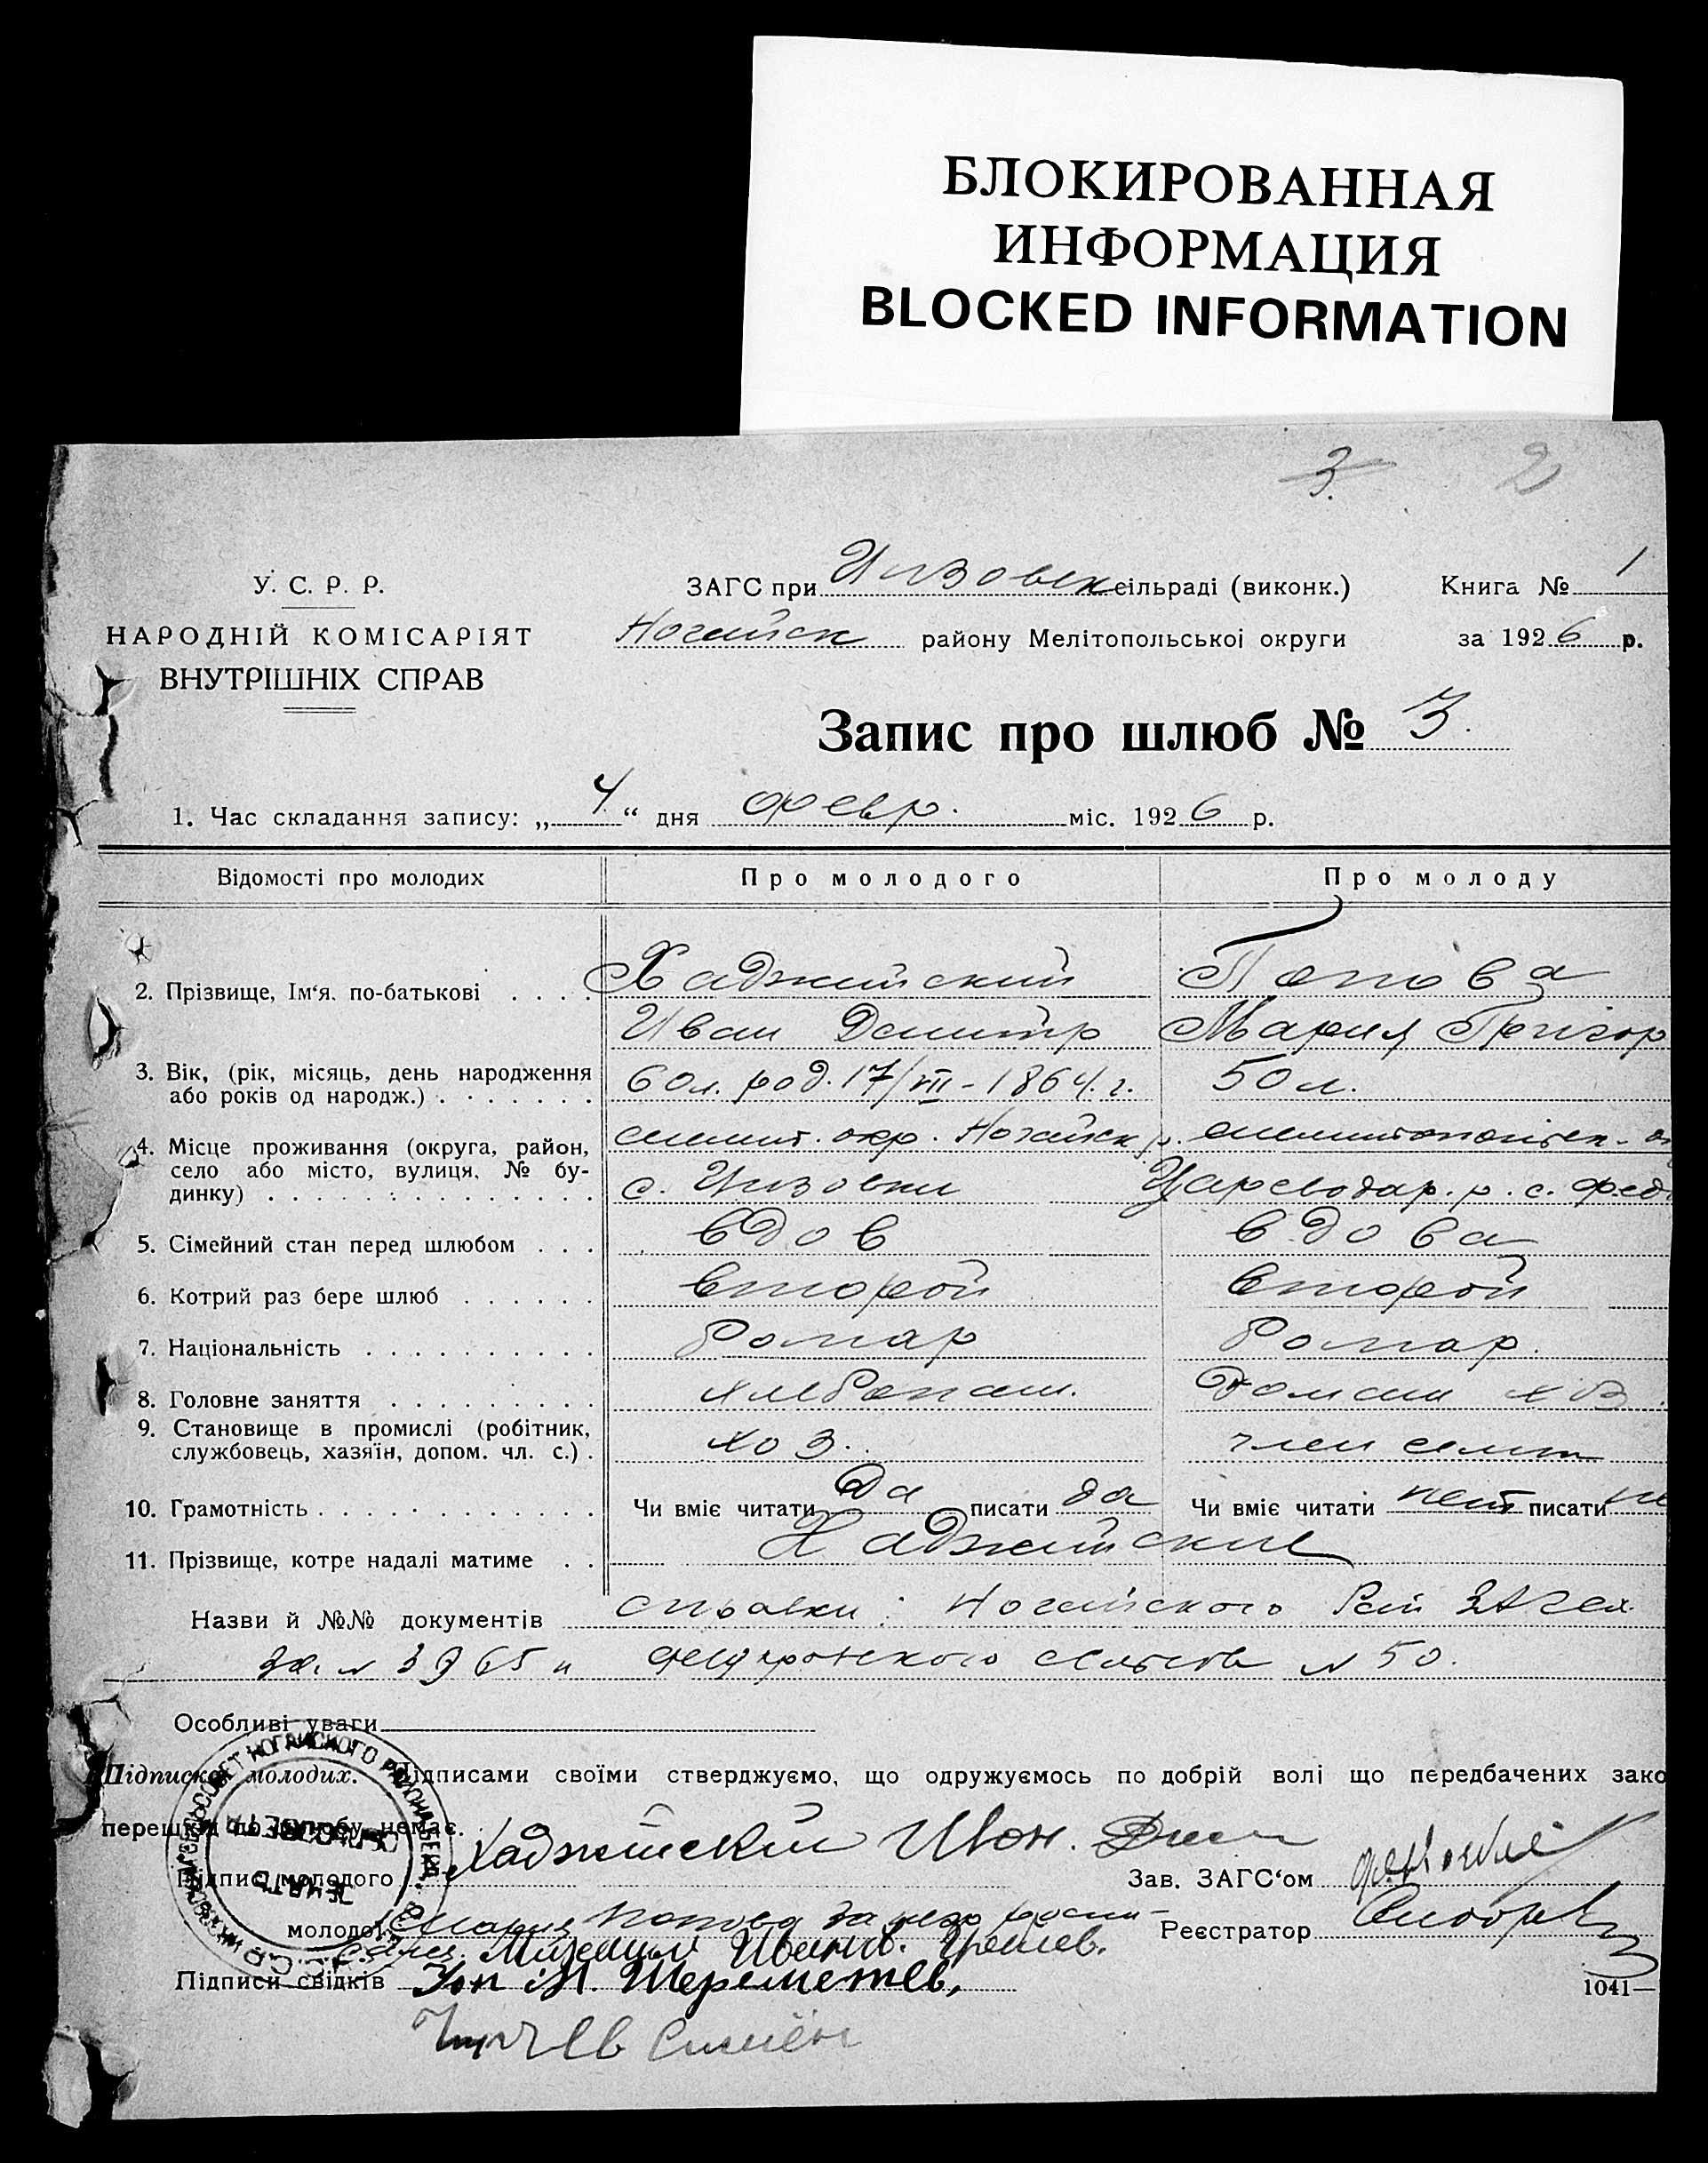 БЛОКИРОВАННАЯ
ИНФОРМАЦИЯ
BLOCKED INFORMATION
3. 2
У. С. Р. Р.
НАРОДНІЙ КОМІСАРІЯТ
ВНУТРІШНІХ СПРАВ
ЗАГС при Инзовск сільраді (виконк.) Книга № 1
Ногайск району Мелітопольської округи за 1926 р.
Запис про шлюб № 3.
1. Час складання запису: „4“ дня Февр. міс. 1926 р.
Відомості про молодих Про молодого Про молоду
2. Прізвище, Ім‘я, по-батькові Хаджийский Попова
Иван Дмитр Мария Григор
3. Вік, (рік, місяць, день народження або років од народж.) 60 л. род. 17/VII - 1864. г. 50 л.
4. Місце проживання (округа, район, село або місто, вулиця, № будинку) мелит. окр. Ногайск р.
с. Инзовки Цареводар. р. с. Федо
5. Сімейний стан перед шлюбом вдов вдова
6. Котрий раз бере шлюб второй второй
7. Національність болгар болгар.
8. Головне заняття хлебопаш. Домаш хоз.
9. Становище в промислі (робітник, службовець, хазяїн, допом. чл. с.) хоз. член семьи
10. Грамотність Чи вміє читати Да писати да Чи вміє читати нет писати не
11. Прізвище, котре надалі матиме Хаджийские
Назви й №№ документів справки: Ногайского Рай ЗАГСа
за № 3965 и Федоровского с/совета № 50.
Особливі уваги
Підписка молодих. Підписами своїми стверджуємо, що одружуємось по добрій волі що передбачених зако
перешкод до шлюбу немає.
Підпис молодого Хаджийский Иван. Дми
Зав. ЗАГС‘ом
молодої Мария Попова за нею роспи-
Реєстратор
Підписи свідків М. Шереметев,
Семён
1041—